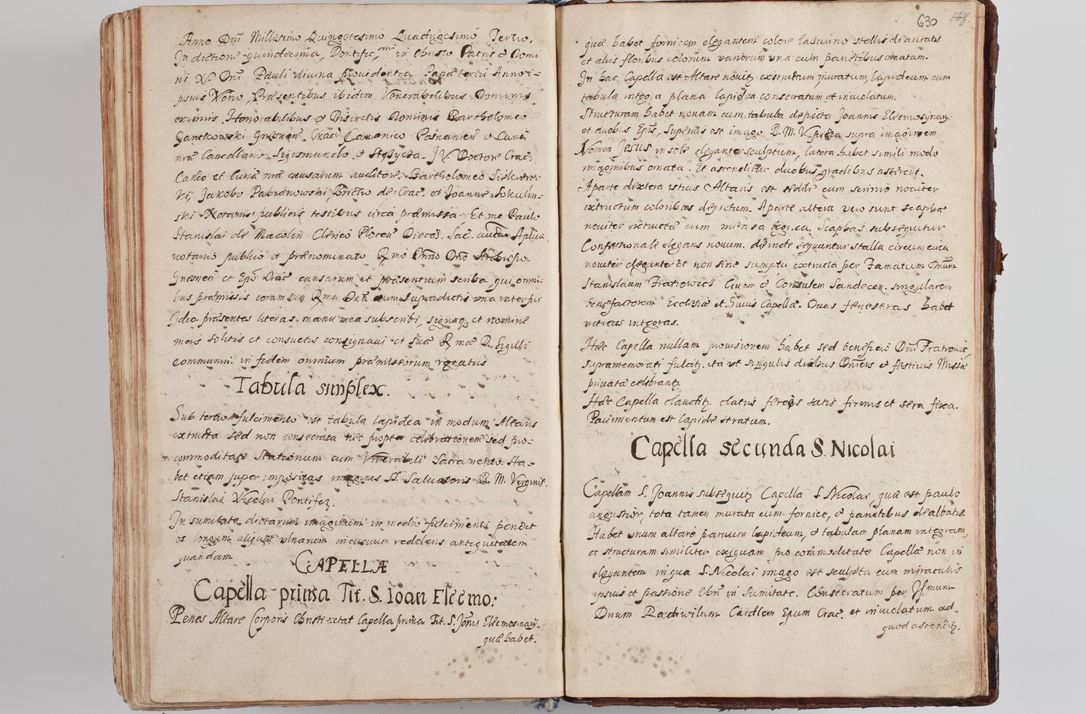 Anno Dnī Millesimo Quingetesimo Quadragesimo Tertio.
Indictione quindecima, Pontific. smī in Christo Patris et Domi
ni N. Dnī Pauli diuina prouidentia Papae tertij Anno i-
psius Nono Praesentibus ibidem Venerabilibus Dominis
eximijs, Honorabilibus et Discretis Dominis Bartholomeo
Gantkowski Gnesnen. Crac. Canonico Posnanien et Curiae
nrae Cancellario Sigismundo de Stężyca J.V. Doctore Crac.
Canco et Curiae nrae causarum auditore, Bartholomeo
ki, Jakobo Pabianowski de Crac. et Joanne Sokulin-
ski Notarijs publicis testibus circa praemissa. Et me Paulo
Stanislai de Macolin Clerico Plocen Dioec. Sac. auctte Aplica
notario publico et praenominato Rmo Dnno Dno Archiepo
Gnesnen et Epō Crac causarum et praesentium scriba, qui omni-
bus praemissis coram Rma Dnī cum supradictis una interfui
Ideo praesentes literas manu mea subscripsi, signoq et nomine
meis solitis et consuetis consignaui et suae Rmae D. sigilli
communi in fidem omnium praemissorum rogatus
Tabula simplex.
Sub tertio fulcimento est tabula lapidea in modum Altaris
extructa sed non consecrata nec propter celebrationem sed pro
commoditate Stationum cum Venerabili Sacramento. Ha-
bet etiam super impositas imagines S. Saluatoris B. M. Virginis
Stanislai Nicolai Pontific.
In sumitate dictarum imaginum in medio fulcimenti pendet
os longum aliquot ulnarum incuruum redolens antiquitatem
quandam.
CAPELLÆ
Capella prima Tit. S. Ioan Eleemo:
Penes Altare Corporis Christi extat Capella prima Tit. S. Jonis Elemosinarij
quae habet.
630
quae habet fornicem elegantem colore lasurino stellis deauratis
et alijs floribus colorum variorum una cum parietibus ornatam.
In hac Capella est Altare nouiter extructum muratum lapideum cum
tabula integra plana lapidea consecratum et inuiolatum.
Structuram habet nouam cum tabula depicta Joannis Elemosynarij
et duobus Epis, superius est imago B. M. V. picta supra imaginem
Nomen Jesus in sole eleganter sculptum, latera habet simili modo
imaginibus ornata. Et ascenditur duobus gradibus
A parte dextera istius Altaris est sedile cum nouiter
extructum coloribus depictum. A parte altera vero sunt scapha
nouiter extructa cum mensa lignea. Scaphas subsequitur
Confessionale elegans nouum, deinde sequuntur stalla circumcirca
nouiter eleganter et non sine sumptu extructa per Famatum Dnum
Stanislaum Fratrowicz Ciuem et Consulem Sandecen. singularem
benefactorem Ecclesiae et huius Capellae. Duas fenestras habet
vitreas integras.
Haec Capella nullam prouisionem habet sed beneficio Dnī Fratrowic
supramemorati fulcitr, ita vt singulis diebus Dnicis et festiuis Missae
priuatae celebrantr.
Haec Capella clauditr clatris ferreis satis firmis et sera fixa.
Pauimentum est lapide stratum.
Capella secunda S. Nicolai
Capellam S. Joannis subsequitr Capella S. Nicolai, quae est paulo
angustior, tota tamen murata cum fornice, et parietibus dealbatis.
Habet unum altare paruum lapideum, et tabulam planam integram,
et structuram similiter exiguam pro commoditate Capellae non in
elegantem in qua S. Nicolai imago est sculpta cum miraculis
ipsius et passione Chri in sumitate. Consecratum per Illmum
Dnum Radiwilum Cardlem Epum Crac. et inuiolatum ad
quod ascenditr.